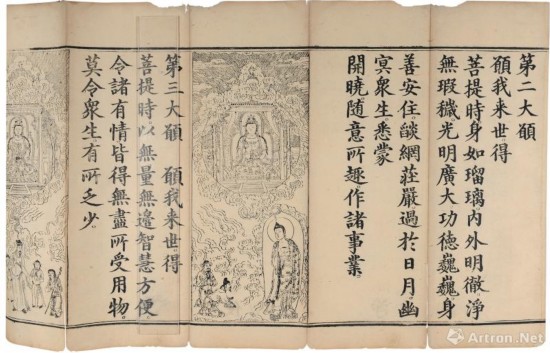 第二大願
願我来世得
菩提時身如瑠璃内外明徹淨
無瑕穢光明廣大功德巍巍身
善安住燄網莊嚴過於日月幽
冥衆生悉蒙
開曉隨意所趣作諸事業。
第三大願　願我来世得
菩提時以無量無邊智慧方便
令諸有情皆得無盡所受用物。
莫令衆生有所乏少。
Artron.Net